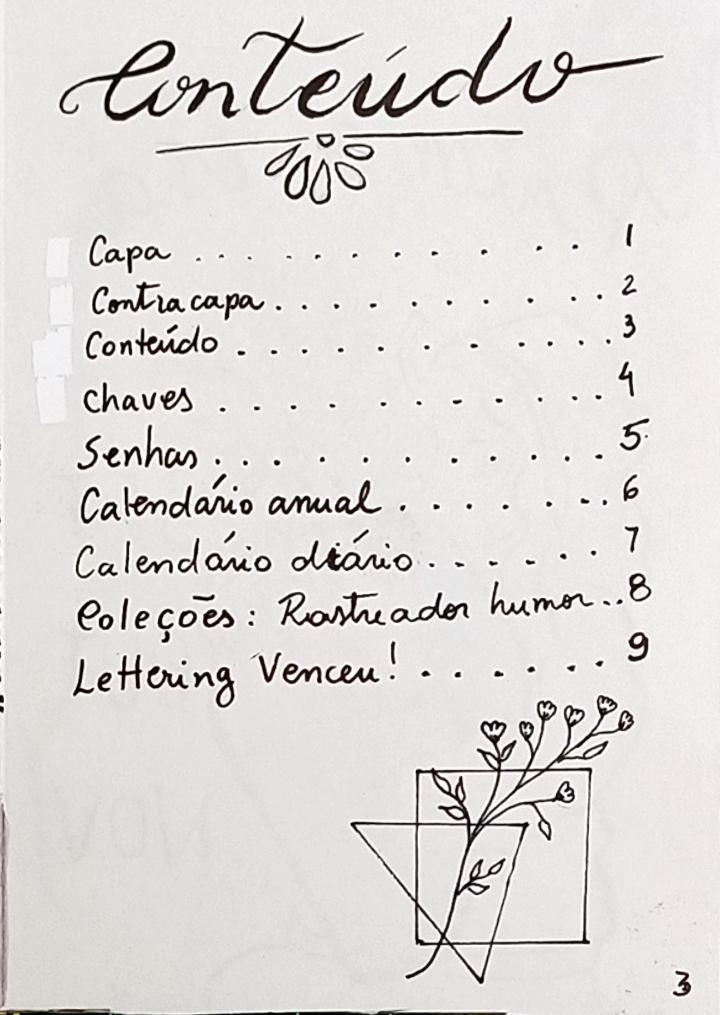 Conteúdo
Capa . . . . . . . . . . . . 1
Contracapa . . . . . . . . . . 2
Conteúdo . . . . . . . . . . . 3
chaves . . . . . . . . . . . 4
Senhas . . . . . . . . . . . 5
Calendário anual . . . . . . . . 6
Calendário diário . . . . . . 7
Coleções: Rastreador humor . . 8
Lettering Venceu! . . . . . . 9
3